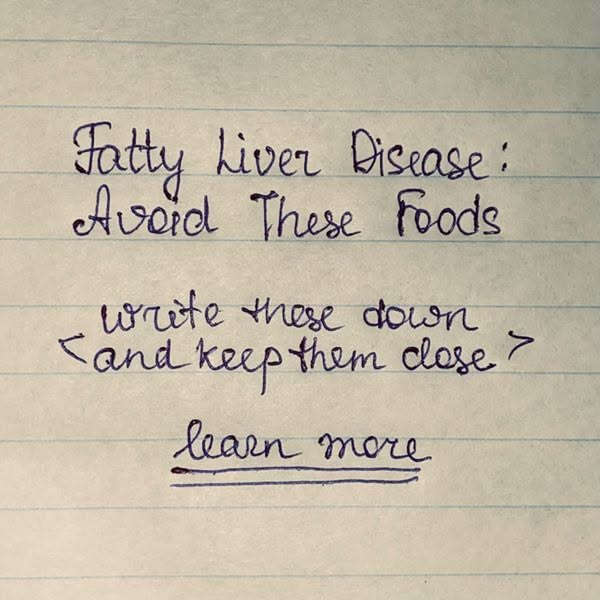 Fatty Liver Disease:
Avoid These Foods
write these down
<and keep them close>
learn more